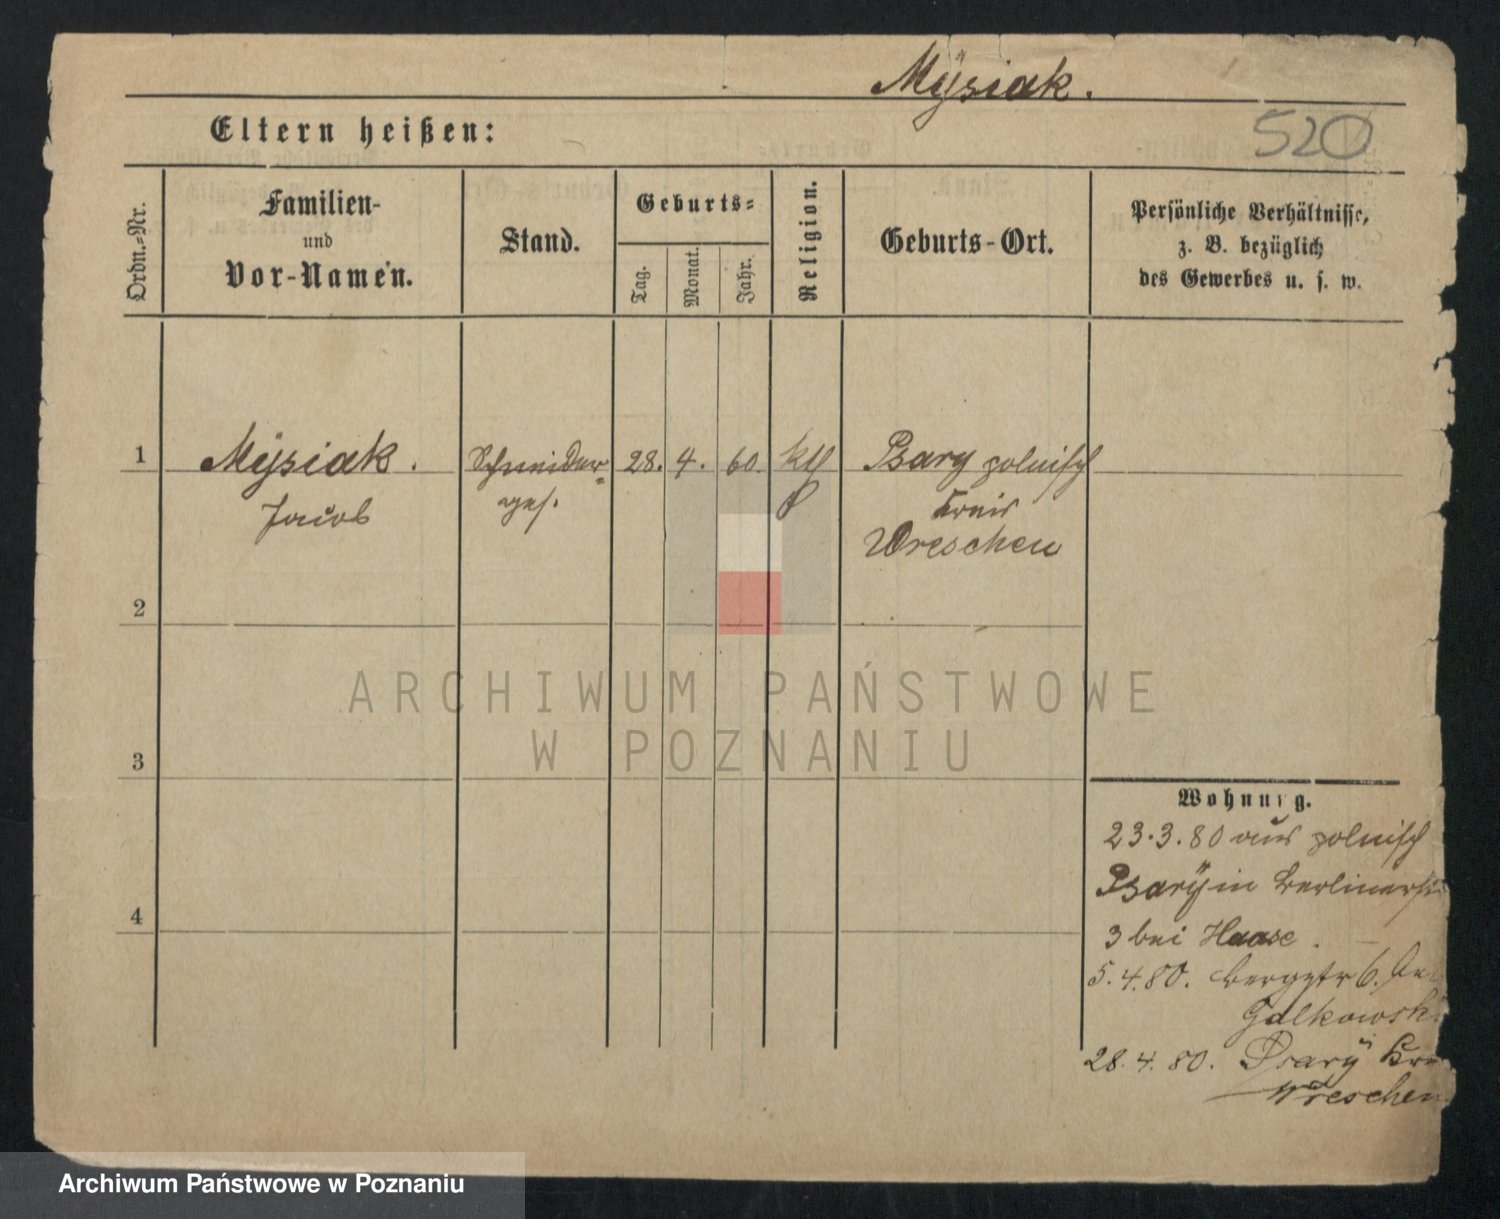 Mÿsiak.
Eltern heißen:
520
Ordn.=Nr.
Familien-
und
Vor-Namen.
Stand.
Geburts=
Tag.
Monat.
Jahr.
Religion.
Geburts-Ort.
Persönliche Verhältnisse,
z. B. bezüglich
des Gewerbes u. s. w.
1 Mÿsiak. Schneider= 28. 4. 60. kth Psary polnisch
Jacob ges. Kreis
Wreschen
2
3
4
ARCHIWUM PAŃSTWOWE
W POZNANIU
Wohnung.
23.3.80 aus polnisch
Psarÿ in Berlinerst
3 bei Haase.
5.4.80. Bergstr 6.
Galkowski
28.4.80. Psarÿ Kre
Wreschen
Archiwum Państwowe w Poznaniu